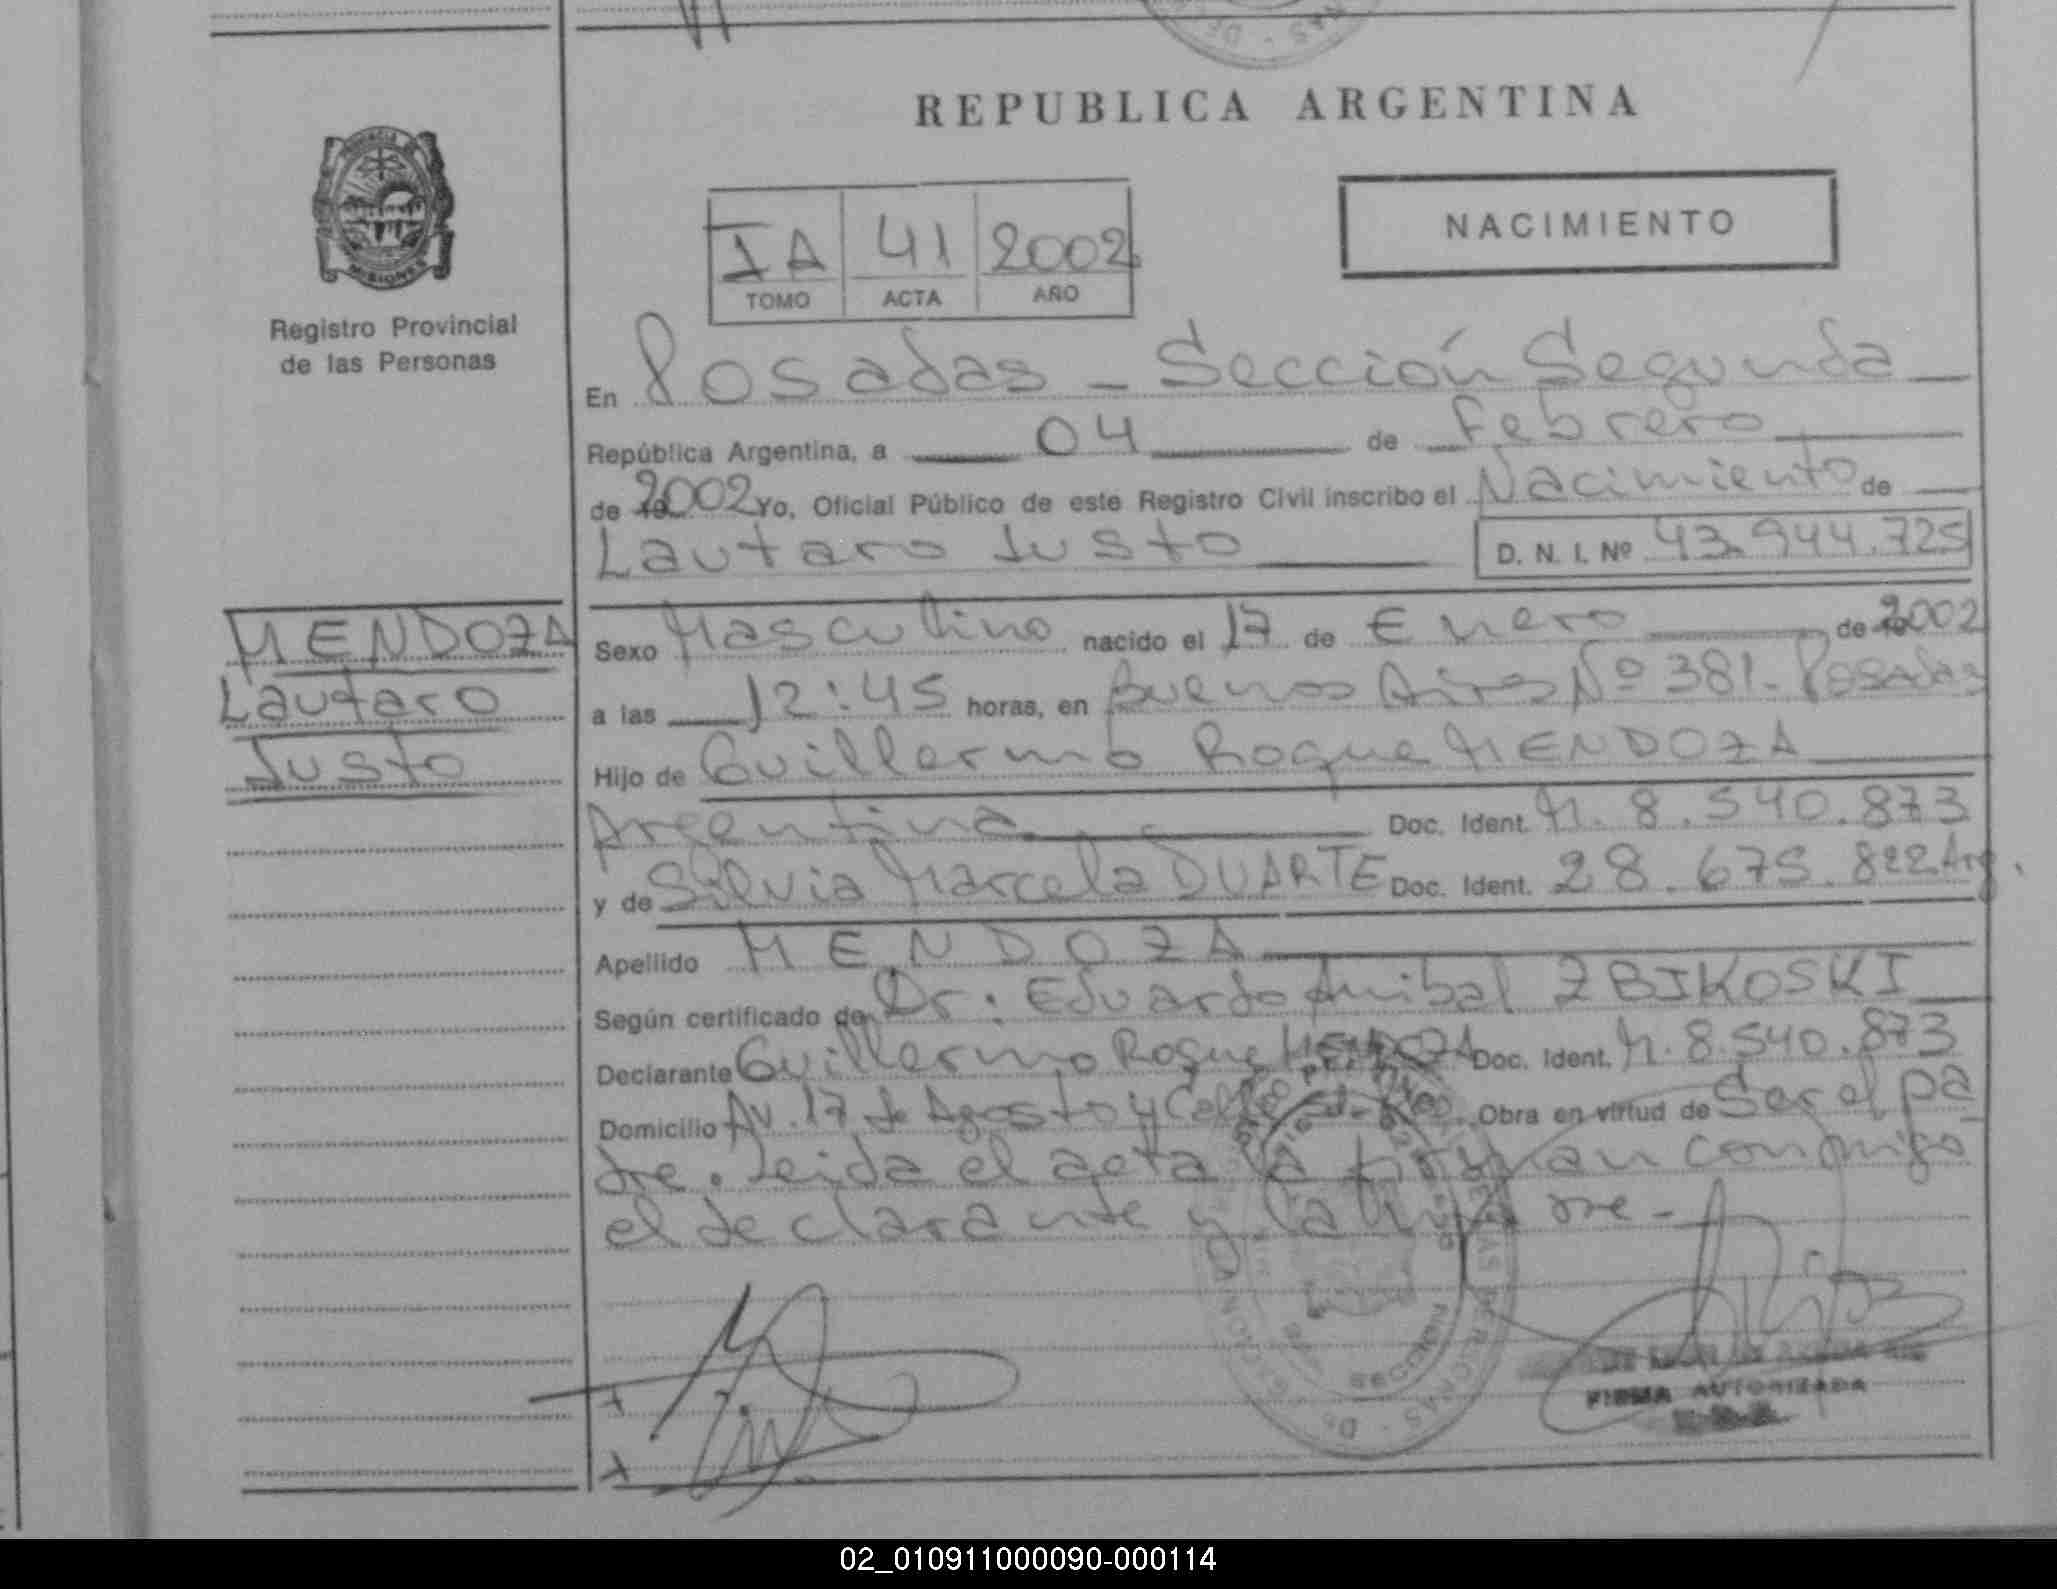 REPUBLICA ARGENTINA
NACIMIENTO
IA 41 2002
TOMO ACTA AÑO
PROVINCIA
MISIONES
Registro Provincial
de las Personas
En Posadas - Sección Segunda
República Argentina, a 04 de Febrero
de 2002 Yo, Oficial Público de este Registro Civil inscribo el Nacimiento de
Lautaro Justo D. N. I. Nº 43.944.725
MENDOZA
Lautaro
Justo
Sexo Masculino nacido el 17 de Enero de 2002
a las 12:45 horas, en Buenos Aires Nº 381 - Posadas
Hijo de Guillermo Roque MENDOZA
Argentina Doc. Ident. M. 8.540.873
y de Silvia Marcela DUARTE Doc. Ident. 28.675.822 Arg.
Apellido MENDOZA
Según certificado de Dr: Eduardo Anibal ZBIKOSKI
Declarante Guillermo Roque MENDOZA Doc. Ident. M. 8.540.873
Domicilio Av. 17 de Agosto y Calle Obra en virtud de Ser el pa
dre. Leida el acta la firman conmigo
el declarante y la madre -
FIRMA AUTORIZADA
02_010911000090-000114